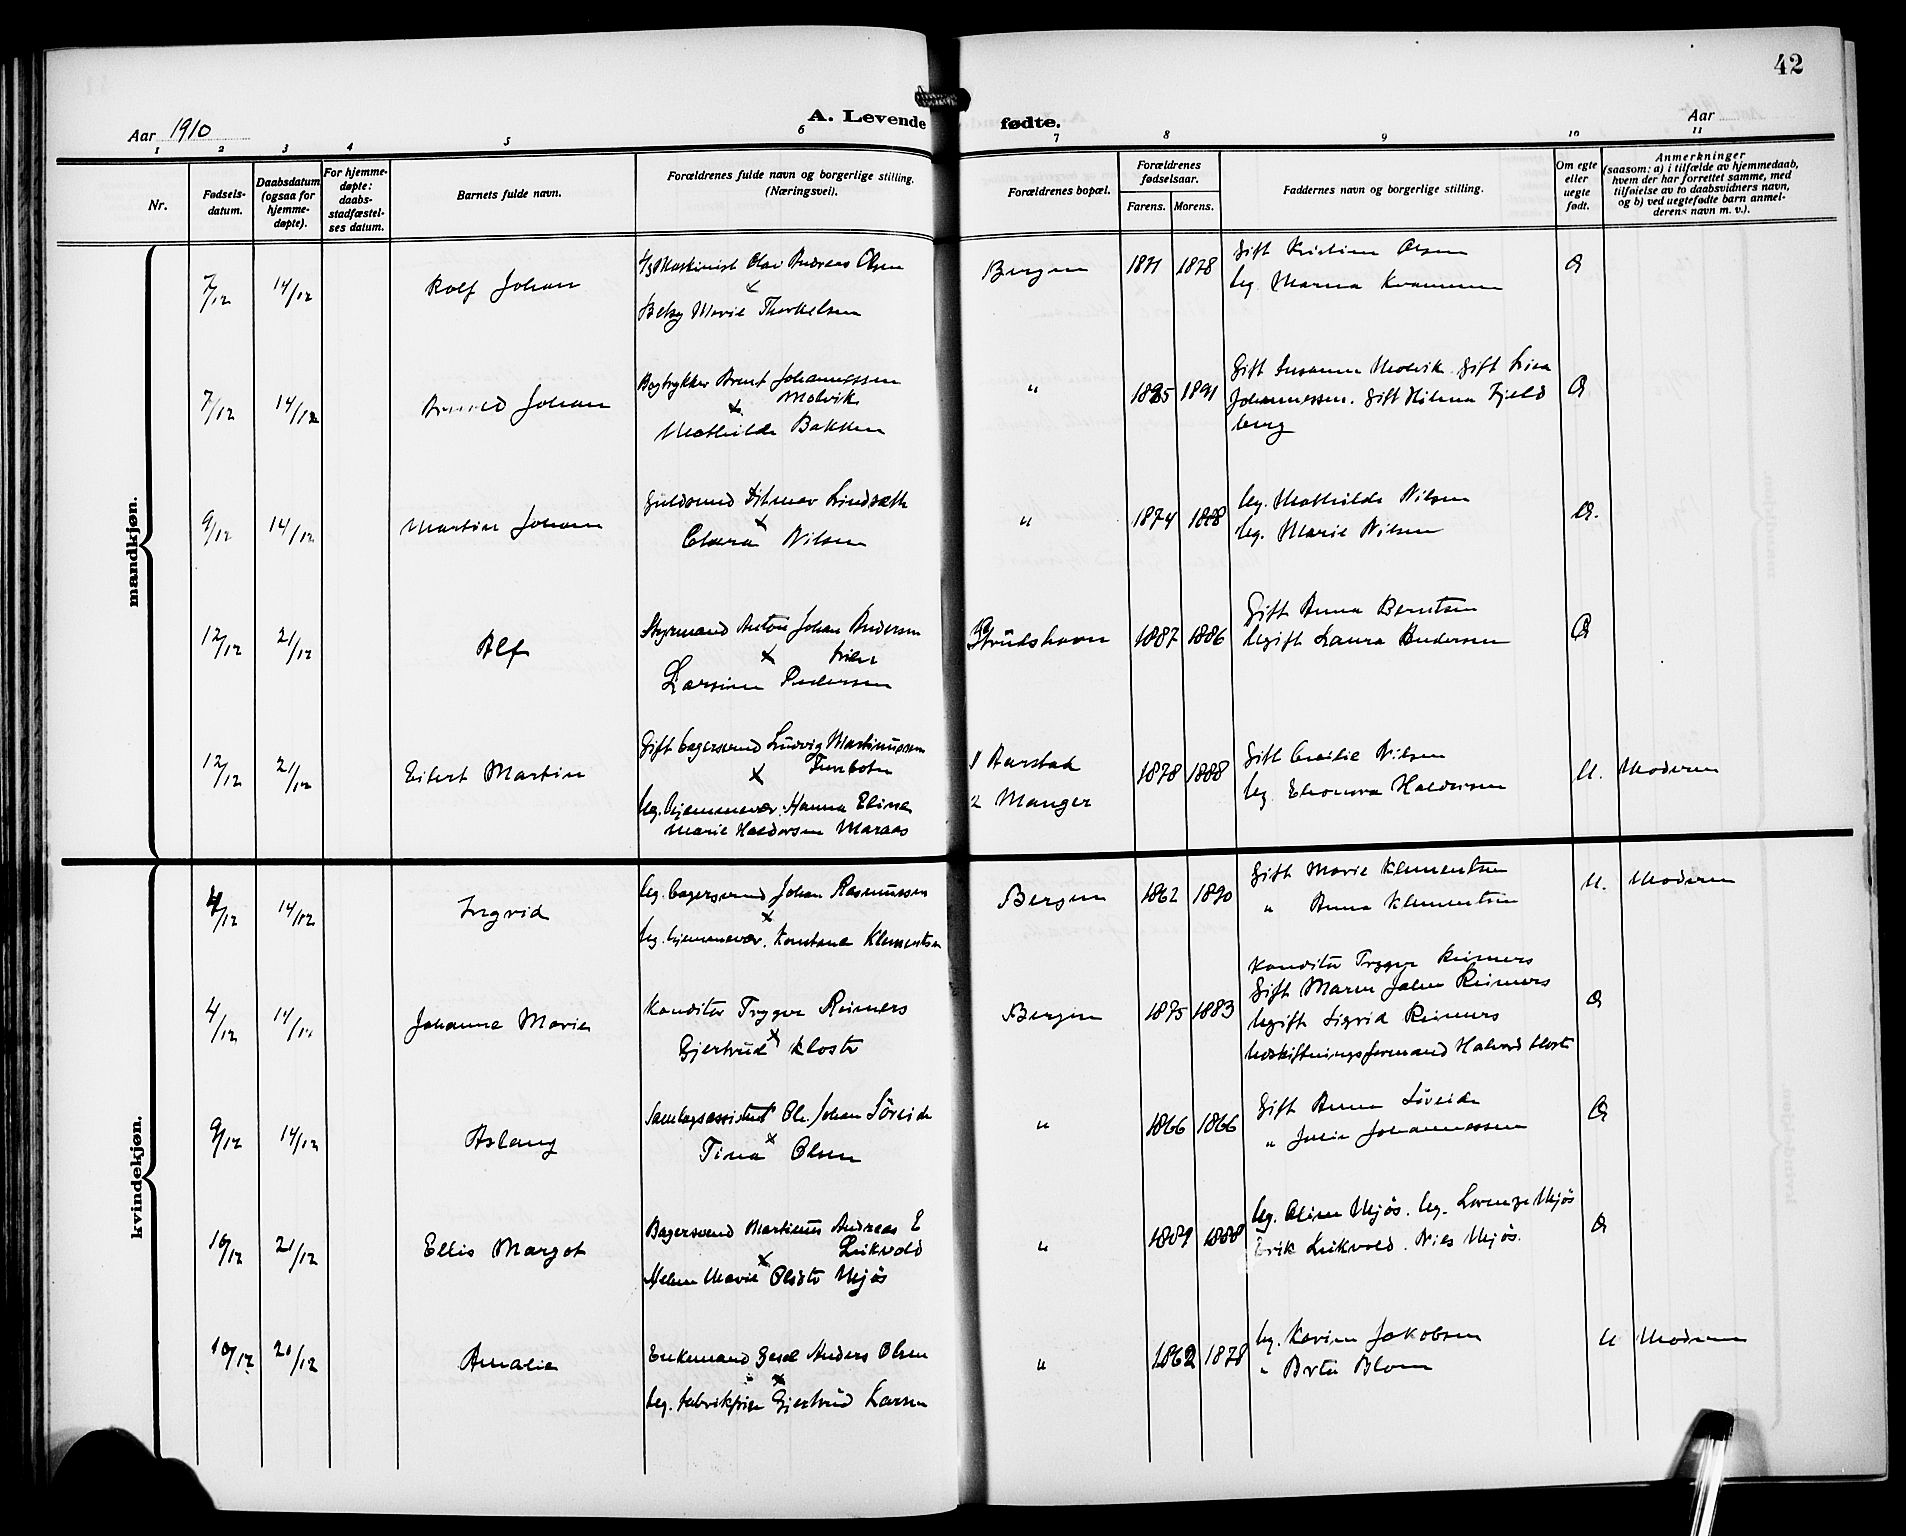 42
Aar 1910
A. Levende fødte.
Aar
1 2 3 4 5 6 7 8 9 10 11
Nr.
Fødsels-
datum.
Daabsdatum
(ogsaa for
hjemme-
døpte).
For hjemme-
døpte:
daabs-
stadfæstel-
ses datum.
Barnets fulde navn.
Forældrenes fulde navn og borgerlige stilling.
(Næringsvei).
Forældrenes bopæl.
Forældrenes
fødselsaar.
Farens. Morens.
Faddernes navn og borgerlige stilling.
Om egte
eller
uegte
født.
Anmerkninger
(saasom: a) i tilfælde av hjemmedaab,
hvem der har forrettet samme, med
tilføielse av to daabsvidners navn,
og b) ved uegtefødte barn anmel-
derens navn m. v.).
mandkjøn.
7/12 14/12 Rolf Johan
Maskinist Olai Andreas Olsen
Betsy Marie Thorkelsen
Bergen 1871 1878
Gift Kristine Olsen
Ug. Marna
7/12 14/12 Arnold Johan
Bogtrykker Johannessen
Molvik
Mathilde Bakken
" 1885 1891
Gift Susanne Molvik. Gift Lina
Johannessen. Gift Helena Fjeld
berg
9/12 14/12 Martin Johan
Guldsmed Ditmar Lindsæth
Clara Nilsen
" 1874 1888
Ug. Mathilde Nilsen
Ug. Marie Nilsen
12/12 21/12 Alf
Styrmand Anton Johan Andersen
Larsine Pedersen
Strudshavn 1887 1886
Gift Anna Berntsen
Ugift Laura Andersen
12/12 21/12 Eilert Martin
Gift bagersvend Ludvig Martinussen
Ug. hjemmevær. Hanna Elina
Marie Haldorsen Maraas
1 Aarstad
2 Manger
1878 1888
Gift Cecilie Nilsen
Ug. Eleonora Haldorsen
U. Moderen
kvindekjøn.
4/12 14/12 Ingrid
Ug. bagersvend Johan Rasmussen
Ug. hjemmevær. Konstanse Klementsen
Bergen 1862 1890
Gift Marie Klementsen
" Anna Klementsen
U. Moderen
4/12 14/12 Johanne Marie
Konditor Trygve Reimers
Gjertrud Kloster
Bergen 1875 1883
Konditor Trygve Reimers
Gift Maren Reimers
Ugift Sigrid Reimers
Utskiftningsformand Halvord Kloster
9/12 14/12 Aslaug
Samlagsassistent Ole Johan Söreide
Tina Olsen
" 1866 1866
Gift Anna Söreide
" Julie Johannessen
10/12 21/12 Ellis Margot
Bagersvend Martinus Andreas E
Leikvold
Helene Marie Mjøs
" 1889 1888
Ug. Oline Mjøs. Ug. Lorenze Mjøs
Erik Leikvold. Nils Mjøs.
10/12 21/12 Amalia
Enkemand Anders Olsen
Ug. fabrikpige Gjertrud Larsen
" 1862 1878
Ug. Karine Jakobsen
" Berta Blom
U Moderen